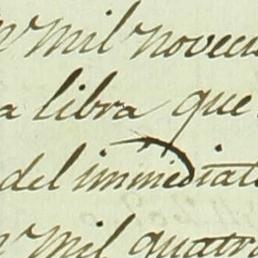 mil novecien
a libra que
del immediat
mil quatro